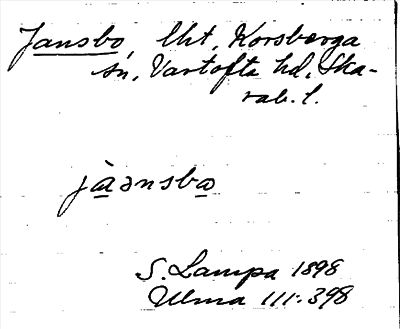 Jansbo, lht, Korsberga
sn, Vartofta hd, Ska-
rab. l.
jàənsbo
S. Lampa 1898
Ulma 111:398